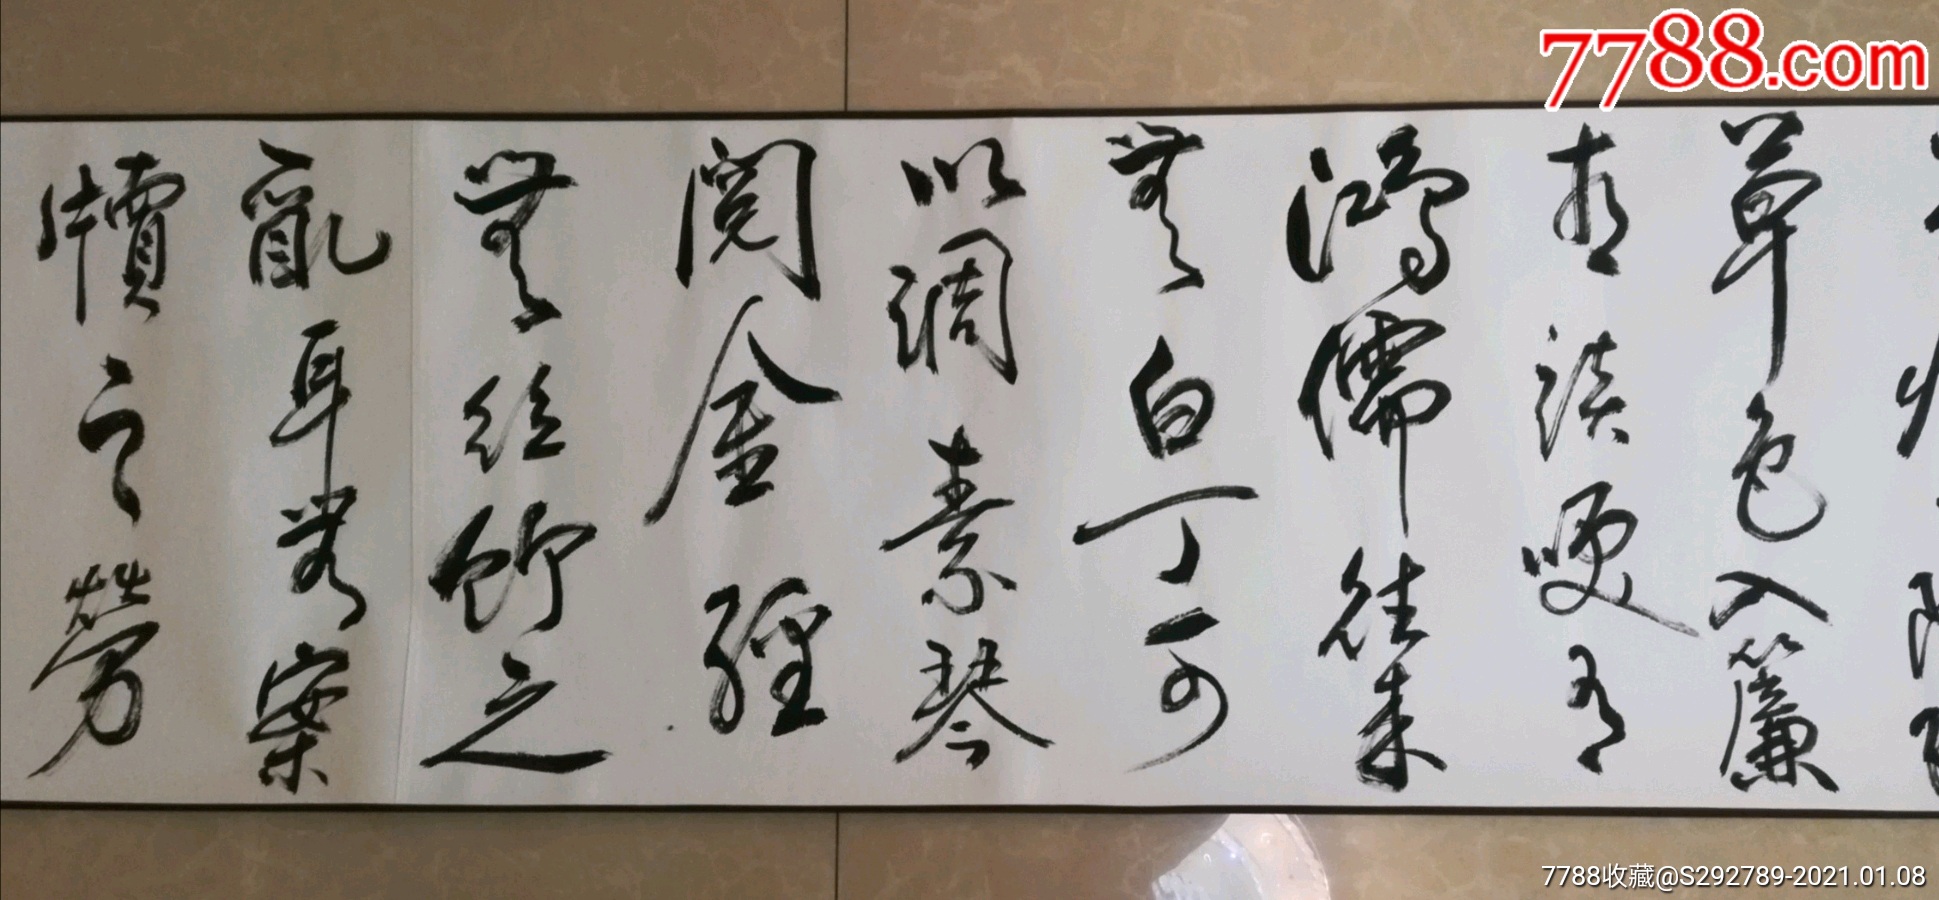 7788.com
草色入簾
青談咲有
鴻儒往來
無白丁可
以調素琴
閱金經
無絲竹之
亂耳無案
牘之勞
7788收藏@S292789-2021.01.08